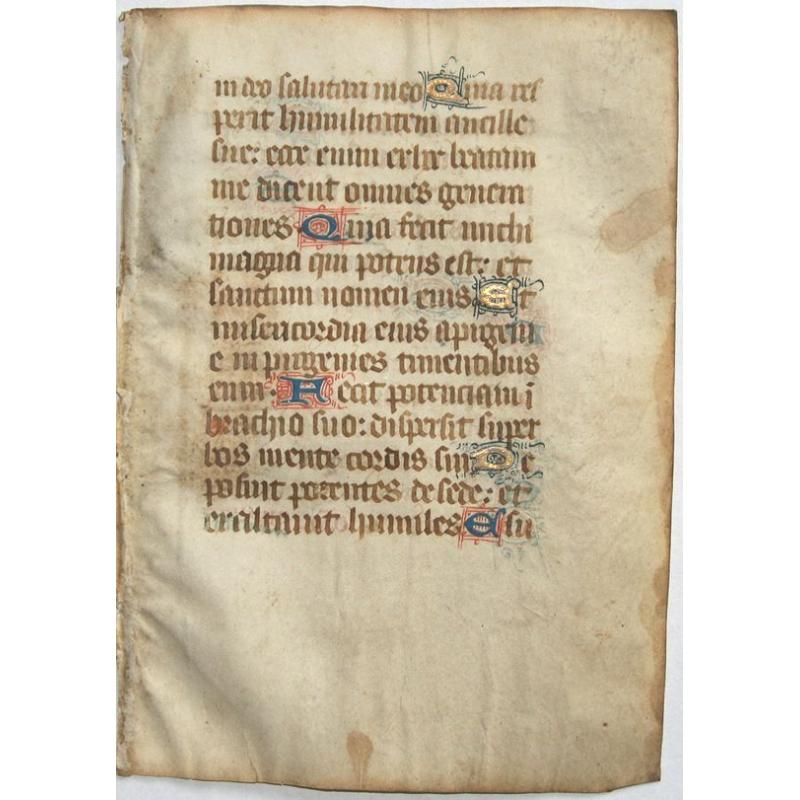 in deo salutari meo Quia res
perit humilitatem ancille
sue: ecce enim ex hoc beatam
me dicent omnes genera
tiones Quia fecit michi
magna qui potens est: et
sanctum nomen eius Et
misericordia eius a progeni
e in progenies timentibus
eum. Fecit potenciam ī
brachio suo: dispersit super
bos mente cordis sui De
posuit potentes de sede: et
exaltauit humiles Esu